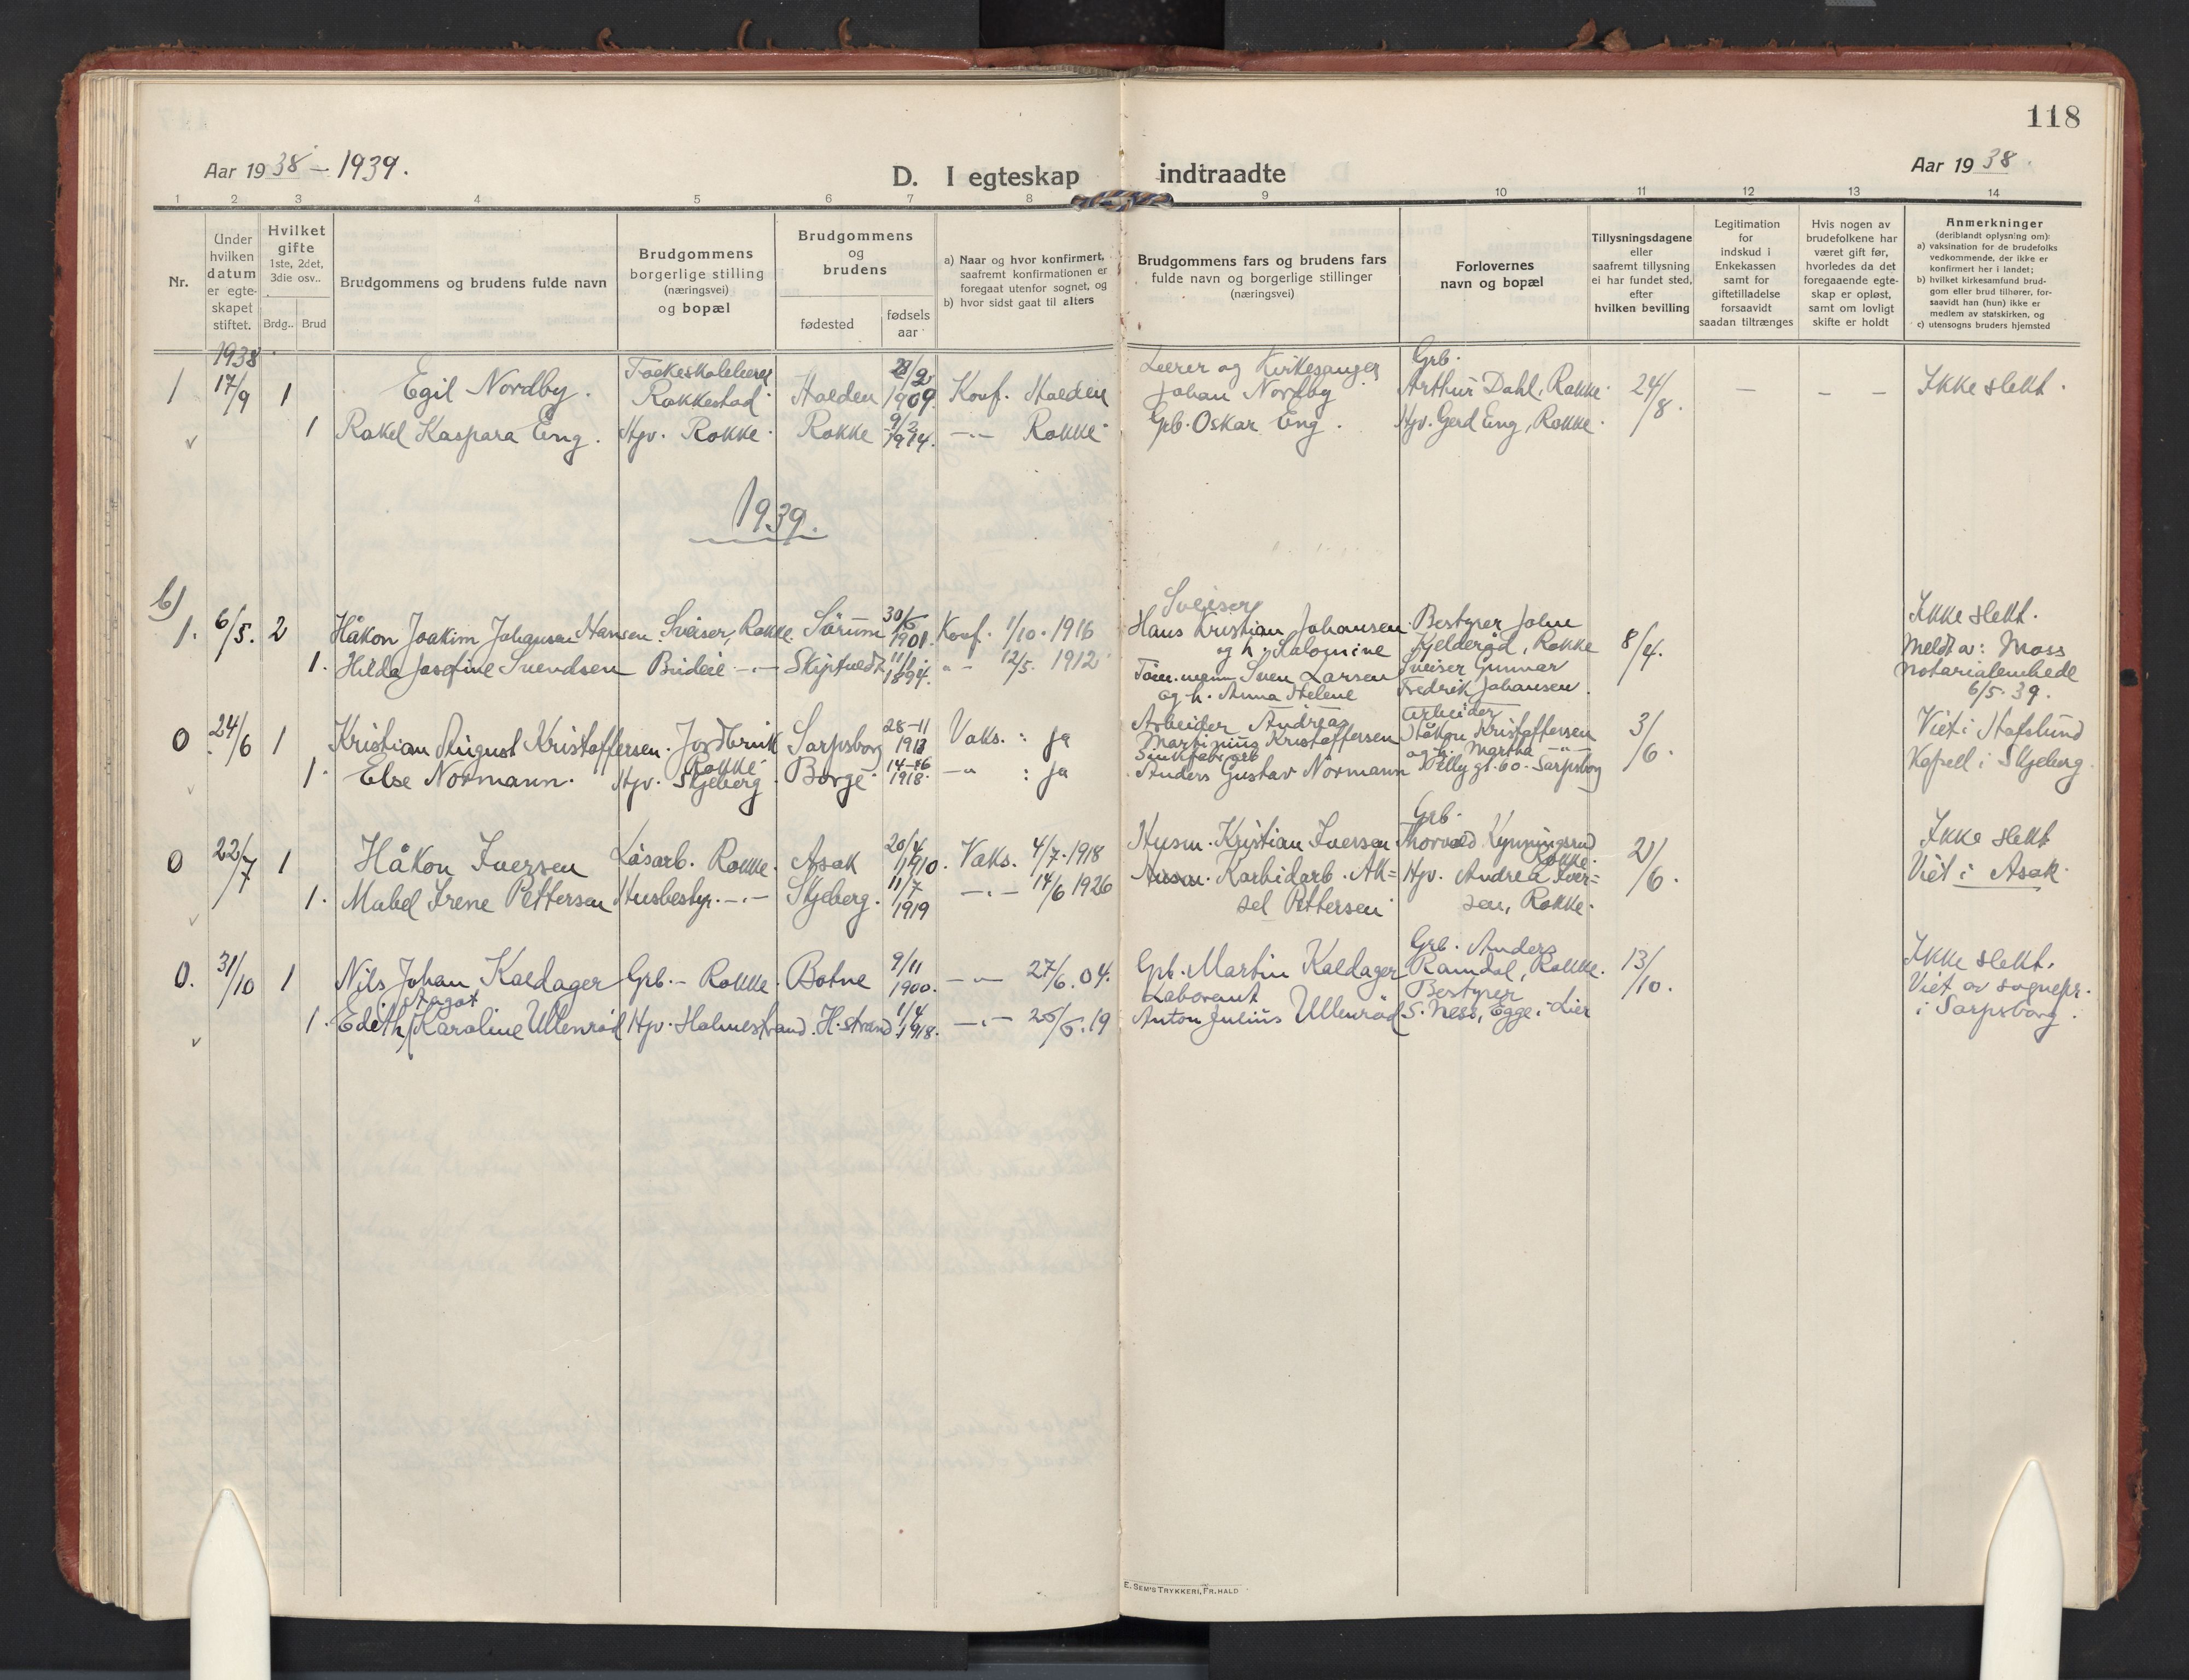 118
Aar 1938 – 1939.
D. I egteskap indtraadte
Aar 1938.
1 2 3 4 5 6 7 8 9 10 11 12 13 14
Nr.
Under hvilken datum er egteskapet stiftet.
Hvilket gifte 1ste, 2det, 3die osv..
Brdg.. Brud
Brudgommens og brudens fulde navn
Brudgommens borgerlige stilling (næringsvei) og bopæl
Brudgommens og brudens
fødested
fødsels aar
a) Naar og hvor konfirmert, saafremt konfirmationen er foregaat utenfor sognet, og
b) hvor sidst gaat til alters
Brudgommens fars og brudens fars fulde navn og borgerlige stillinger (næringsvei)
Forlovernes navn og bopæl
Tillysningsdagene eller saafremt tillysning ei har fundet sted, efter hvilken bevilling
Legitimation for indskud i Enkekassen samt for giftetilladelse forsaavidt saadan tiltrænges
Hvis nogen av brudefolkene har været gift før, hvorledes da det foregaaende egteskap er opløst, samt om lovligt skifte er holdt
Anmerkninger
(deriblandt oplysning om):
a) vaksination for de brudefolks vedkommende, der ikke er konfirmert her i landet;
b) hvilket kirkesamfund brudgom eller brud tilhører, forsaavidt han (hun) ikke er medlem av statskirken, og
c) utensogns bruders hjemsted
1938
1 17/9 1 Egil Nordby. Rakkestad Halden 28/2 1909. Konf. Halden Lærer og Kirkesanger Johan Nordby Grb. Arthur Dahl, Rokke. 24/8. – – – Ikke slekt.
1 Rakel Kaspara Eng. Hjv. Rokke. Rokke 9/3 1914. –"– Rokke Gb. Oskar Eng. Hjv. Gerd Eng, Rokke.
1939.
b)
1. 6/5. 2 Håkon Joakim Johansen Hansen. Sveiser, Rokke. Sörum 1901. Konf. 1/10. 1916 Sveiser Hans Kristian Johansen og h. Salomine Bestyrer John Kjelderød, Rokke 8/4. Ikke slekt. Meldt av: Moss notarialembede 6/5. 39.
1. Hilda Josefine Svendsen Budeie –"– Skiptvedt 11/1 1894. " – 12/5. 1912 Sven Larsen og h. Anna Helene Sveiser Gunnar Fredrik Johansen.
0 24/6 1 Kristian August Kristoffersen. Jordbruk Rokke Sarpsborg 28-11 1913 Vaks. : ja Arbeider Andreas Martinius Kristoffersen Arbeider Håkon Kristoffersen og h. Martha –"– 3/6. Viet i Hafslund Kapell i Skjeberg.
1. Else Normann. Hjv. Skjeberg. Borge 1918. –" : ja Anders Gustav Normann gt. 60. Sarpsborg
0 22/7 1 Håkon Iversen Løsarb. Rokke. Asak 20/4 1910. Vaks. 4/7. 1918 Husm. Kristian Iversen Grb. Thorvald Kynningsrud Rokke. 21/6. Ikke slekt Viet i Asak.
1. Mabel Irene Pettersen Husbestyr. –"– Skjeberg. 11/7 1919 –"– 14/6 1926 Karbidarb. Aksel Pettersen Hjv. Andrea Iversen, Rokke.
0. 31/10 1 Nils Johan Kaldager Grb. – Rokke. Botne 9/11 1900. –"– 27/6. 04. Gb. Martin Kaldager Grb. Anders Ramdal, Rokke. 13/10. Ikke slekt. Viet av sognepr. i Sarpsborg.
1. Edith Agagot Karoline Ullenrød Hjv. Holmestrand. H.strand 1/4 1918. –"– 19 Laborant Anton Julius Ullenrød Bestyrer S. Ness, Egge i Lier
E. SEM'S TRYKKERI, FR.HALD